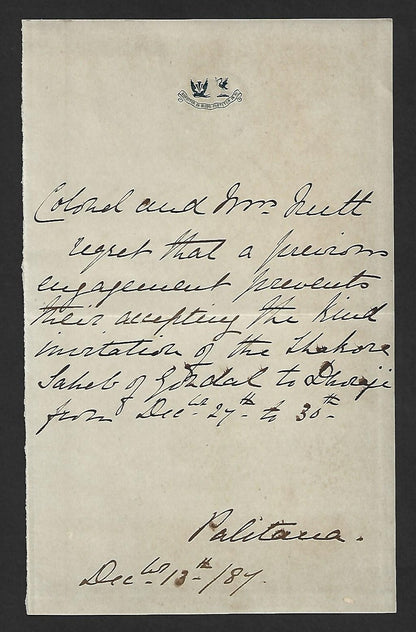 Colonel and Mrs. Nutt
regret that a previous
engagement prevents
their accepting the kind
invitation of the Thakore
Saheb of Gondal to Dhoraji
from Decbr. 27th to 30th
Palitana.
Decbr. 13th/87.